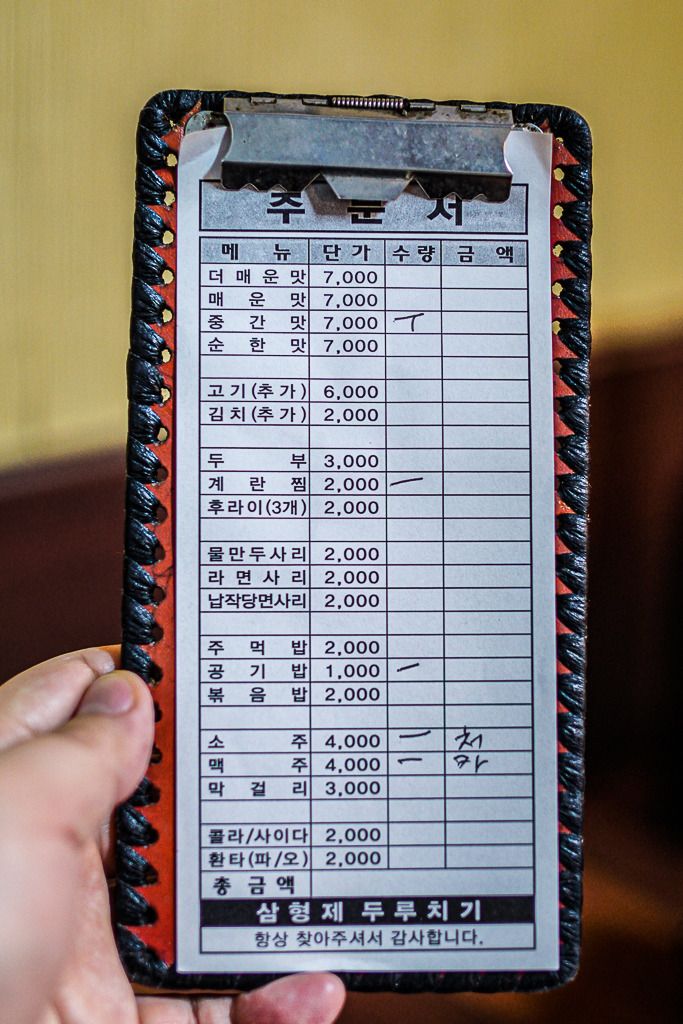 주 문 서
메 뉴 단 가 수 량 금 액
더 매 운 맛 7,000
매 운 맛 7,000
중 간 맛 7,000 ㅜ
순 한 맛 7,000
고 기 (추 가) 6,000
김 치 (추 가) 2,000
두 부 3,000
계 란 찜 2,000 一
후라이(3개) 2,000
물만두사리 2,000
라 면 사 리 2,000
납작당면사리 2,000
주 먹 밥 2,000
공 기 밥 1,000 一
볶 음 밥 2,000
소 주 4,000 一
맥 주 4,000 一
막 걸 리 3,000
콜라/사이다 2,000
환타(파/오) 2,000
총 금 액
삼 형 제 두 루 치 기
항상 찾아주셔서 감사합니다.